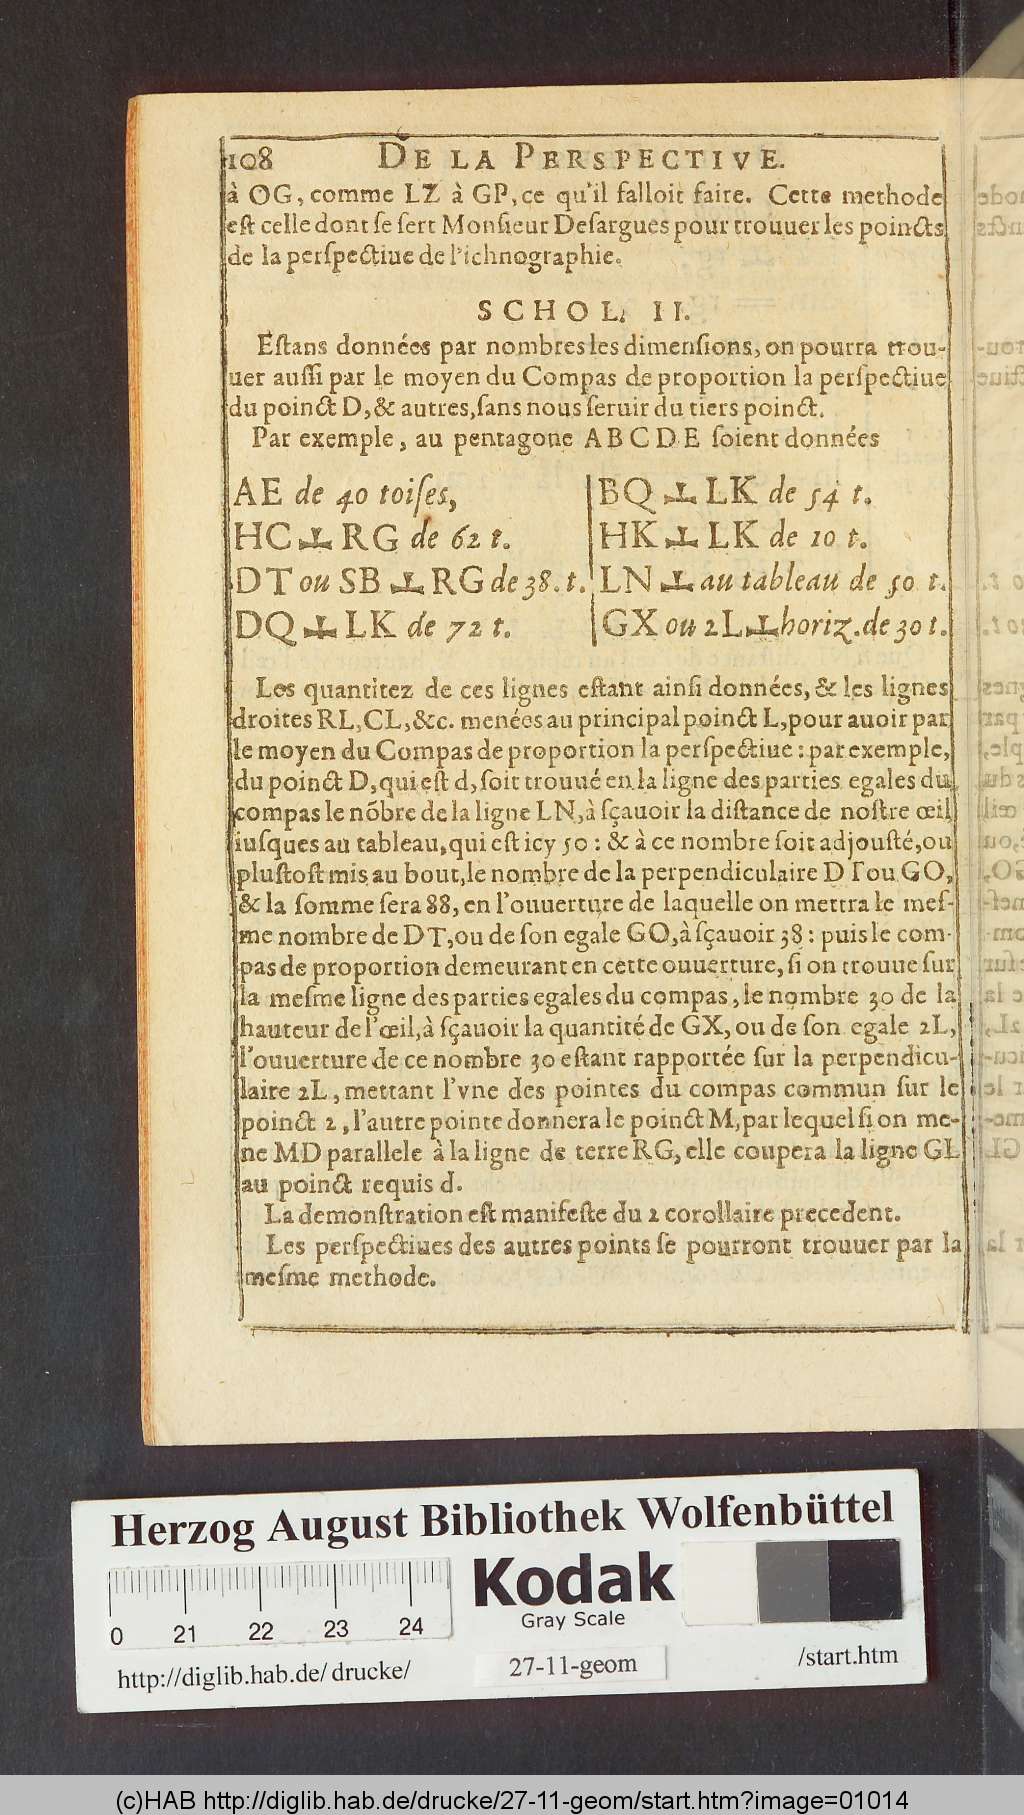 108 DE LA PERSPECTIVE.
à OG, comme LZ à GP, ce qu'il falloit faire. Cette methode
eſt celle dont ſe ſert Monſieur Deſargues pour trouuer les poincts
de la perſpectiue de l'ichnographie.
SCHOL. II.
Eſtans données par nombres les dimenſions, on pourra trou-
uer auſſi par le moyen du Compas de proportion la perſpectiue
du poinct D, & autres, ſans nous ſeruir du tiers poinct.
Par exemple, au pentagone ABCDE ſoient données
AE de 40 toiſes,
HC ⊥ RG de 62 t.
DT ou SB ⊥ RG de 38. t.
DQ ⊥ LK de 72 t.
BQ ⊥ LK de 54 t.
HK ⊥ LK de 10 t.
LN ⊥ au tableau de 50 t.
GX ou 2L ⊥ horiz. de 30 t.
Les quantitez de ces lignes eſtant ainſi données, & les lignes
droites RL, CL, &c. menées au principal poinct L, pour auoir par
le moyen du Compas de proportion la perſpectiue : par exemple,
du poinct D, qui eſt d, ſoit trouué en la ligne des parties egales du
compas le nõbre de la ligne LN, à ſçauoir la diſtance de noſtre œil
iuſques au tableau, qui eſt icy 50 : & à ce nombre ſoit adjouſté, ou
pluſtoſt mis au bout, le nombre de la perpendiculaire DT ou GO,
& la ſomme ſera 88, en l'ouuerture de laquelle on mettra le meſ-
me nombre de DT, ou de ſon egale GO, à ſçauoir 38 : puis le com-
pas de proportion demeurant en cette ouuerture, ſi on trouue ſur
la meſme ligne des parties egales du compas, le nombre 30 de la
hauteur de l'œil, à ſçauoir la quantité de GX, ou de ſon egale 2L,
l'ouuerture de ce nombre 30 eſtant rapportée ſur la perpendicu-
laire 2L, mettant l'vne des pointes du compas commun ſur le
poinct 2, l'autre pointe donnera le poinct M, par lequel ſi on me-
ne MD parallele à la ligne de terre RG, elle coupera la ligne GL
au poinct requis d.
La demonſtration eſt manifeſte du 2 corollaire precedent.
Les perſpectiues des autres points ſe pourront trouuer par la
meſme methode.
Herzog August Bibliothek Wolfenbüttel
Kodak
Gray Scale
0 21 22 23 24
http://diglib.hab.de/ drucke/ 27-11-geom /start.htm
(c)HAB http://diglib.hab.de/drucke/27-11-geom/start.htm?image=01014